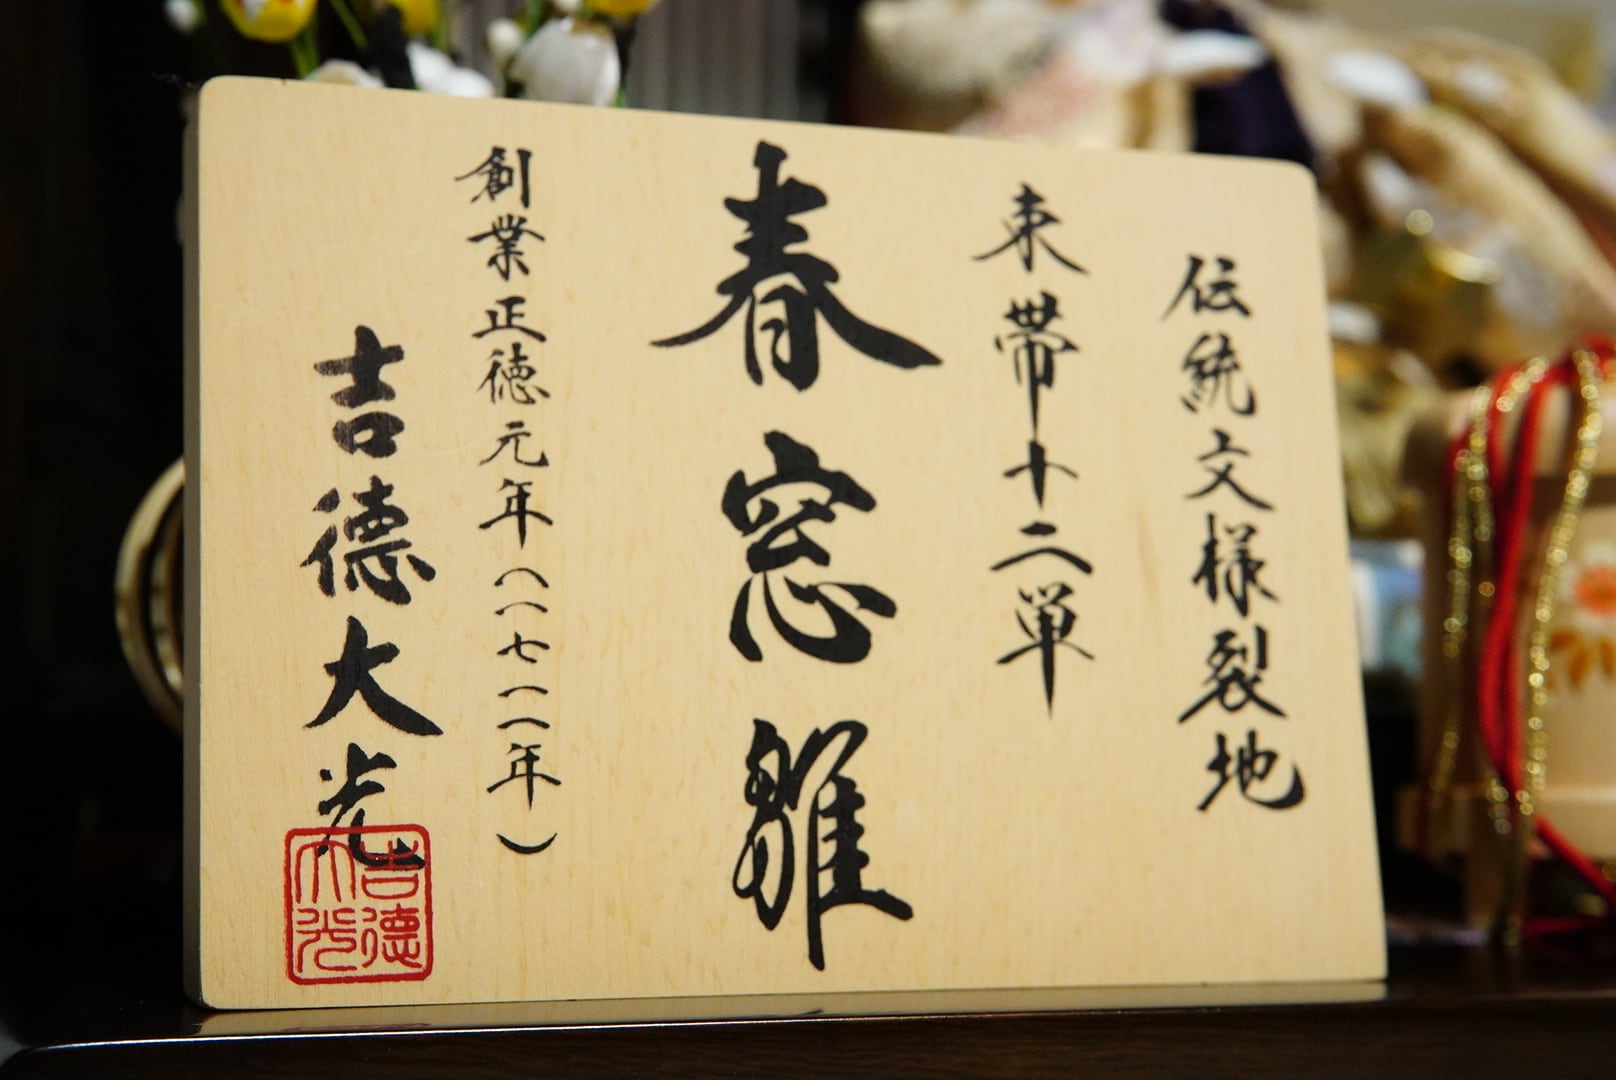 伝統文様裂地
束帯十二単
春窓雛
創業正徳元年(一七一一年)
吉德大光
吉德大光